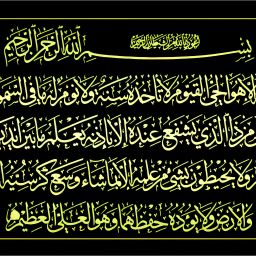 أعوذ بالله من الشيطان الرجيم
بسم الله الرحمن الرحيم
لا هو الحي القيوم لا تأخذه سنة ولا نوم له ما في السمو
من ذا الذي يشفع عنده إلا بإذنه يعلم ما بين أيدي
ولا يحيطون بشيء من علمه إلا بما شاء وسع كرسيه ا
والأرض ولا يؤده حفظهما وهو العلي العظيم